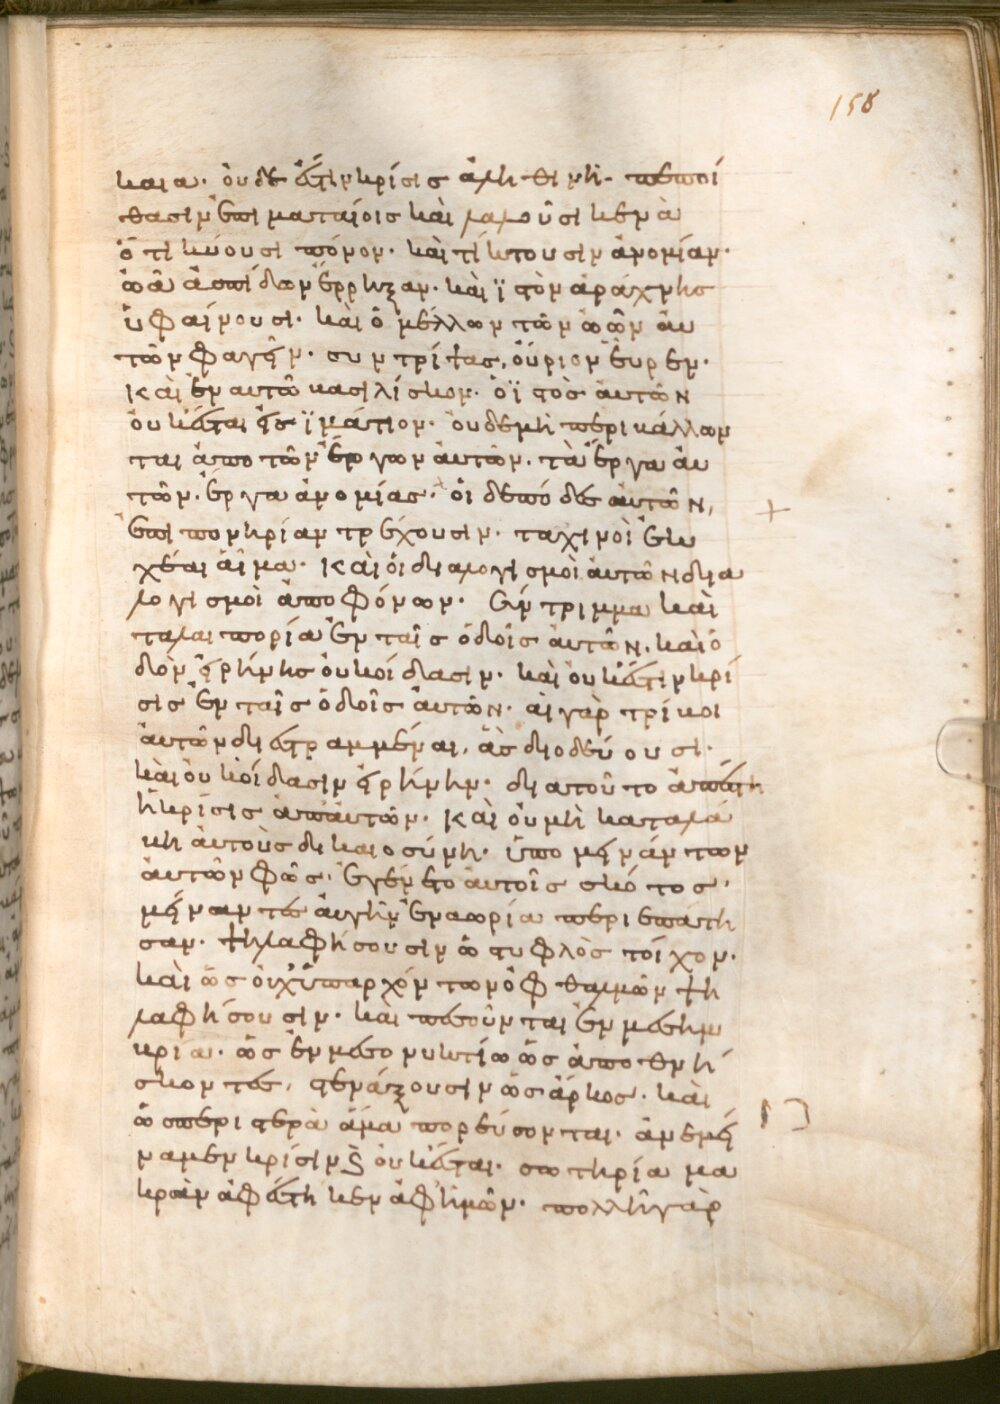 158
καια· ὀυδὲ ἔστιν κρίσις ἀληθινὴ· πεποί
θασιν ἐπι ματαίοις καὶ λαλοῦσι κενὰ
ὅτι κύουσι πόνον· καὶ τίκτουσιν ἀνομίαν·
ὠὰ ἀσπίδων ἔρρηξαν· καὶ ϊστὸν ἀράχνης
ὑφαίνουσι· καὶ ὁ μέλλων τῶν ὠῶν ἀυ
τῶν φαγεῖν· συντρίψας, ὄυριον ἕυρεν·
καὶ ἐν αυτῶ βασιλίσκον· ὁ ϊστὸς ἀυτῶν
ὀυκ ἔσται εἰς ϊμάτιον· ὀυδε μὴ περιβάλλων
ται ἀπο τῶν ἔργων ἀυτῶν· τὰ ἔργα ἀυ
τῶν· ἔργα ἀνομίας· ὁι δε πόδες ἀυτῶν,
ἐπι πονηρίαν τρέχουσιν· ταχινοὶ ἐκ
χέαι αἷμα· καὶ ὁι διαλογισμοὶ ἀυτῶν δια
λογισμοὶ ἀπο φόνων· σύντριμμα καὶ
ταλαιπορία ἐν ταῖς ὁδοῖς ἀυτῶν· καὶ ὁ
δὸν εἰρήνης ὀυκ οἴδασιν· καὶ ὀυκ ἔστιν κρί
σις ἐν ταῖς ὁδοῖς ἀυτῶν· ἁι γὰρ τρίβοι
ἀυτῶν διεστραμμέναι, ἃς διοδεύουσι·
καὶ ὀυκ οἴδασιν εἰρήνην· δια τοῦτο ἀπέστη
ἡ κρίσις απ ἀυτῶν· καὶ ὀυ μὴ καταλά
βη ἀυτοὺς δικαιοσύνη· ὑπομεινάντων
ἀυτῶν φῶς· ἐγένετο ἀυτοῖς σκότος·
μείναντες ἀυγὴν ἐν αωρία περιεπάτη
σαν· ψηλαφήσουσιν ὡς τυφλὸς τοίχον·
καὶ ὡς ὀυχ ὑπαρχόντων ὀφθαλμῶν ψη
λαφήσουσιν· καὶ πεσοῦνται ἐν μεσημ
βρία· ὡς ἐν μεσονυκτίω ὡς ἀποθνή
σκοντες, στενάξουσιν ὡς ἄρκος· καὶ
ὡς περιστερὰ ἅμα πορεύσονται· ἀνεμεί
ναμεν κρίσιν ϗ ὀυκ ἔσται· σωτηρία μα
κρὰν ἀφέστηκεν ἀφ ἡμῶν· πολλὴ γὰρ